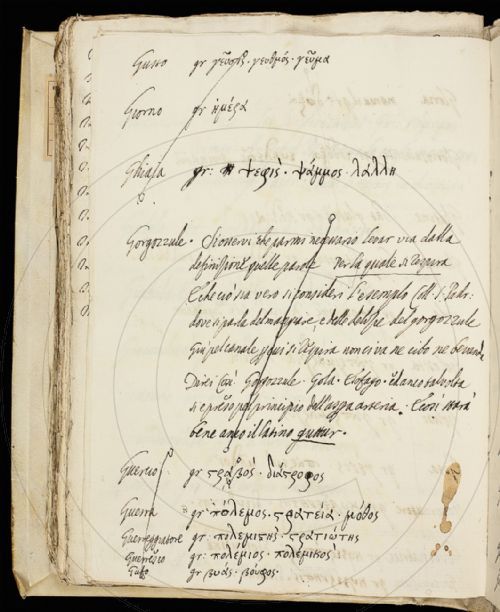 Gusto gr γεῦσις · γευθμός · γεῦμα
Giorno gr ἡμέρα
Ghiaia gr: ψεφις · ψάμμος · λάλλη
Gorgozzule · Si osservi che parmi necessario levar via dalla
definizione quelle parole per la quale si respira
E che ciò sia vero si consideri l'esempio Coll. S. Padr:
dove si parla del mangiare, e delle del gorgozzule
Giù pel canale, onde si respira non si va ne cibo ne bevanda
Direi così Gorgozzule · Gola · Esofago · ed anco talvolta
si è preso pel principio dell'aspra arteria · E così starà
bene anco il latino guttur ·
Guercio gr στραβός · διάστροφος
Guerra gr πόλεμος · στρατεία · μόθος
Guerreggiatore gr πολεμιστής · στρατιώτης
Guerresco gr: πολέμιος · πολεμικός
Gufo gr βυάς ·